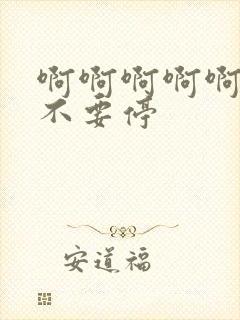 啊啊啊啊啊
不要停
安道福